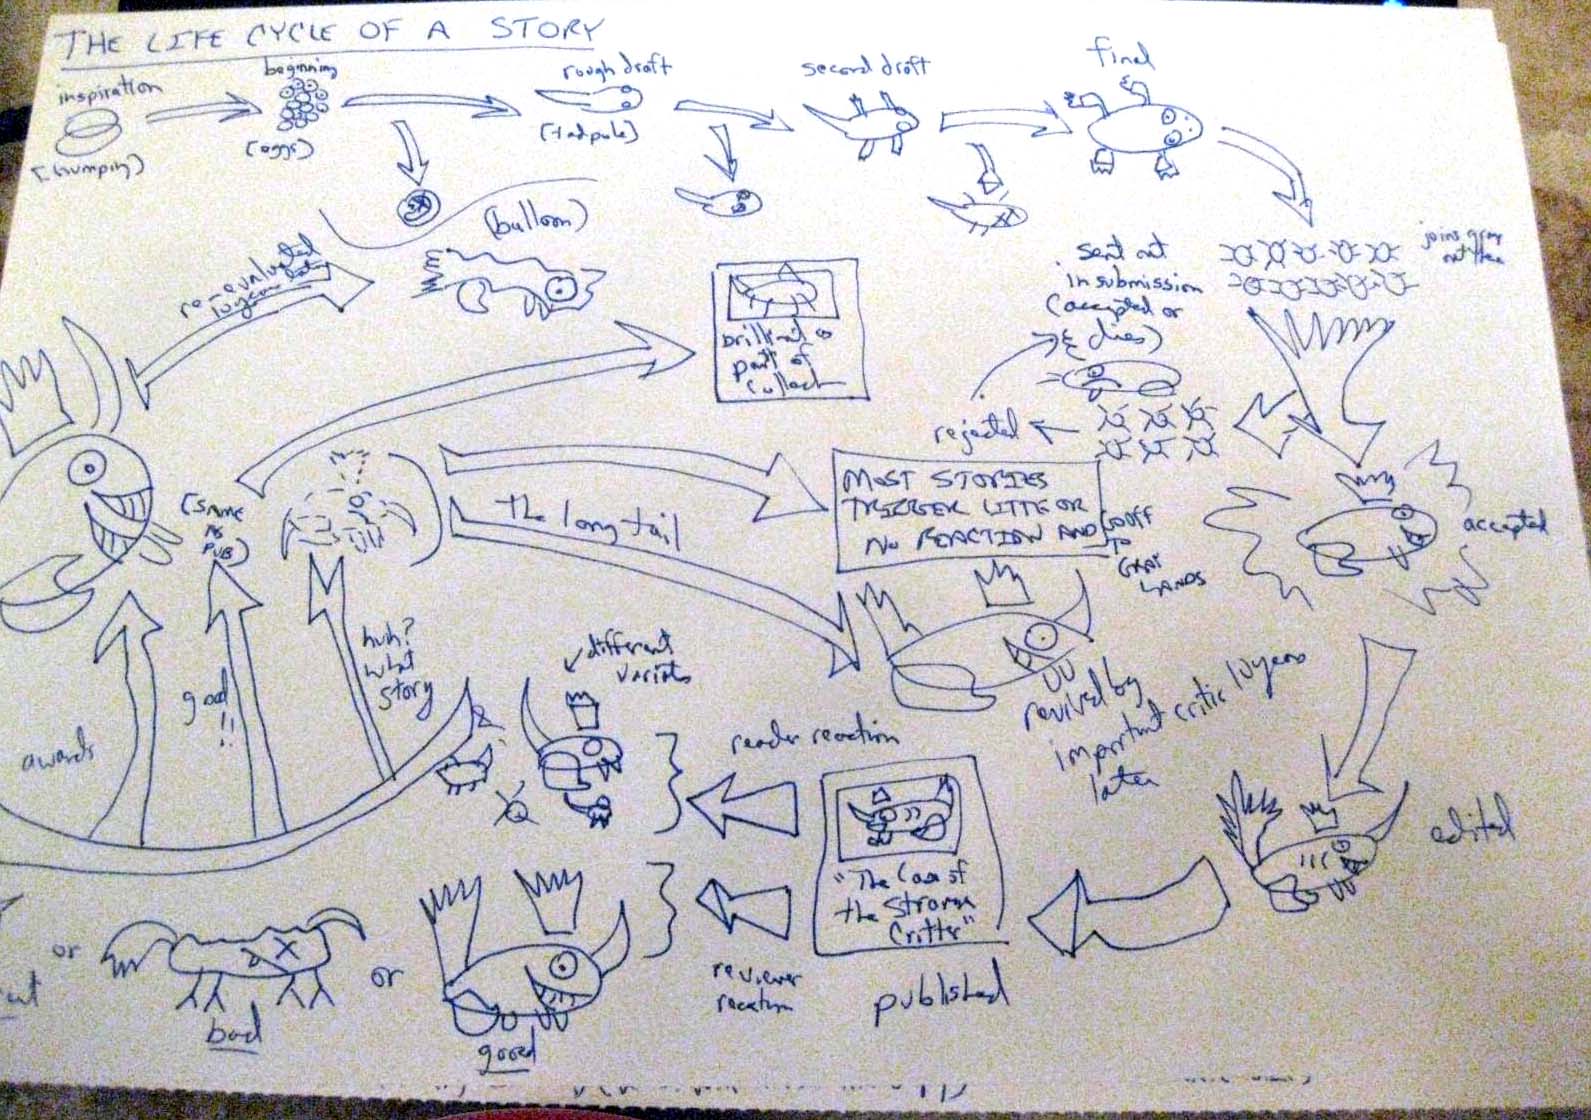 THE LIFE CYCLE OF A STORY
inspiration
(humping)
beginning
(eggs)
rough draft
(tadpole)
second draft
final
joins
sent out
in submission
(accepted or
dies)
rejected
accepted
edited
published
"The Case of
the Strange
Critter"
reader reaction
reviewer
reaction
different
variants
good
or
bad
or
awards
good
!!
huh?
what
story
(SAME
AS
PUB)
re-evaluated
10 years later
(balloon)
brilliant as
part of
The long tail
MOST STORIES
TRIGGER LITTE OR
NO REACTION AND
GO OFF
TO
GRAY
LANDS
revived by
important critic 10 years
later